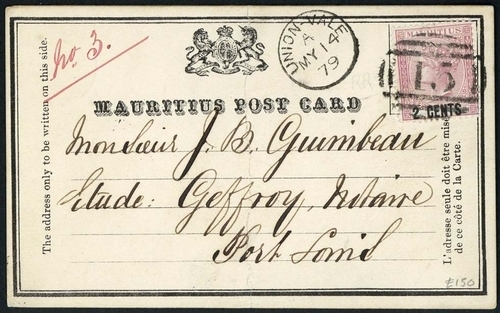 No. 3.
The address only to be written on this side.
UNION-VALE
A
MY 14
79
MAURITIUS
15
2 CENTS
MAURITIUS POST CARD
Monsieur J. B. Guimbeau
Etude: Geffroy, Notaire
Port Louis
L'adresse seule doit être mise
de ce côté de la Carte.
£150